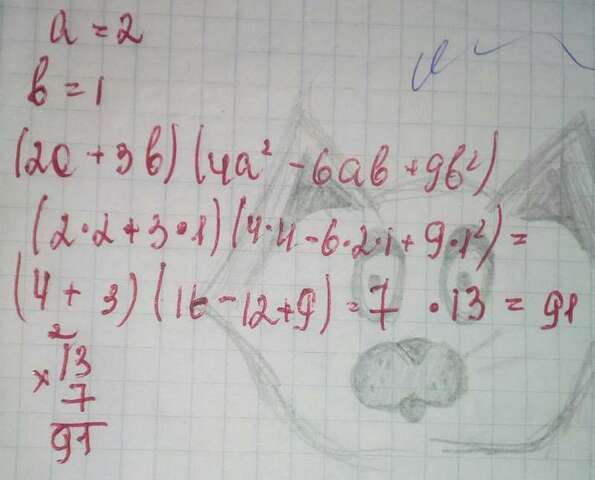 a = 2
b = 1
(2a + 3b) (4a² - 6ab + 9b²)
(2·2+3·1)(4·4-6·2·1+9·1²)=
(4 + 3) (16-12+9) = 7 · 13 = 91
2
× 13
7
91